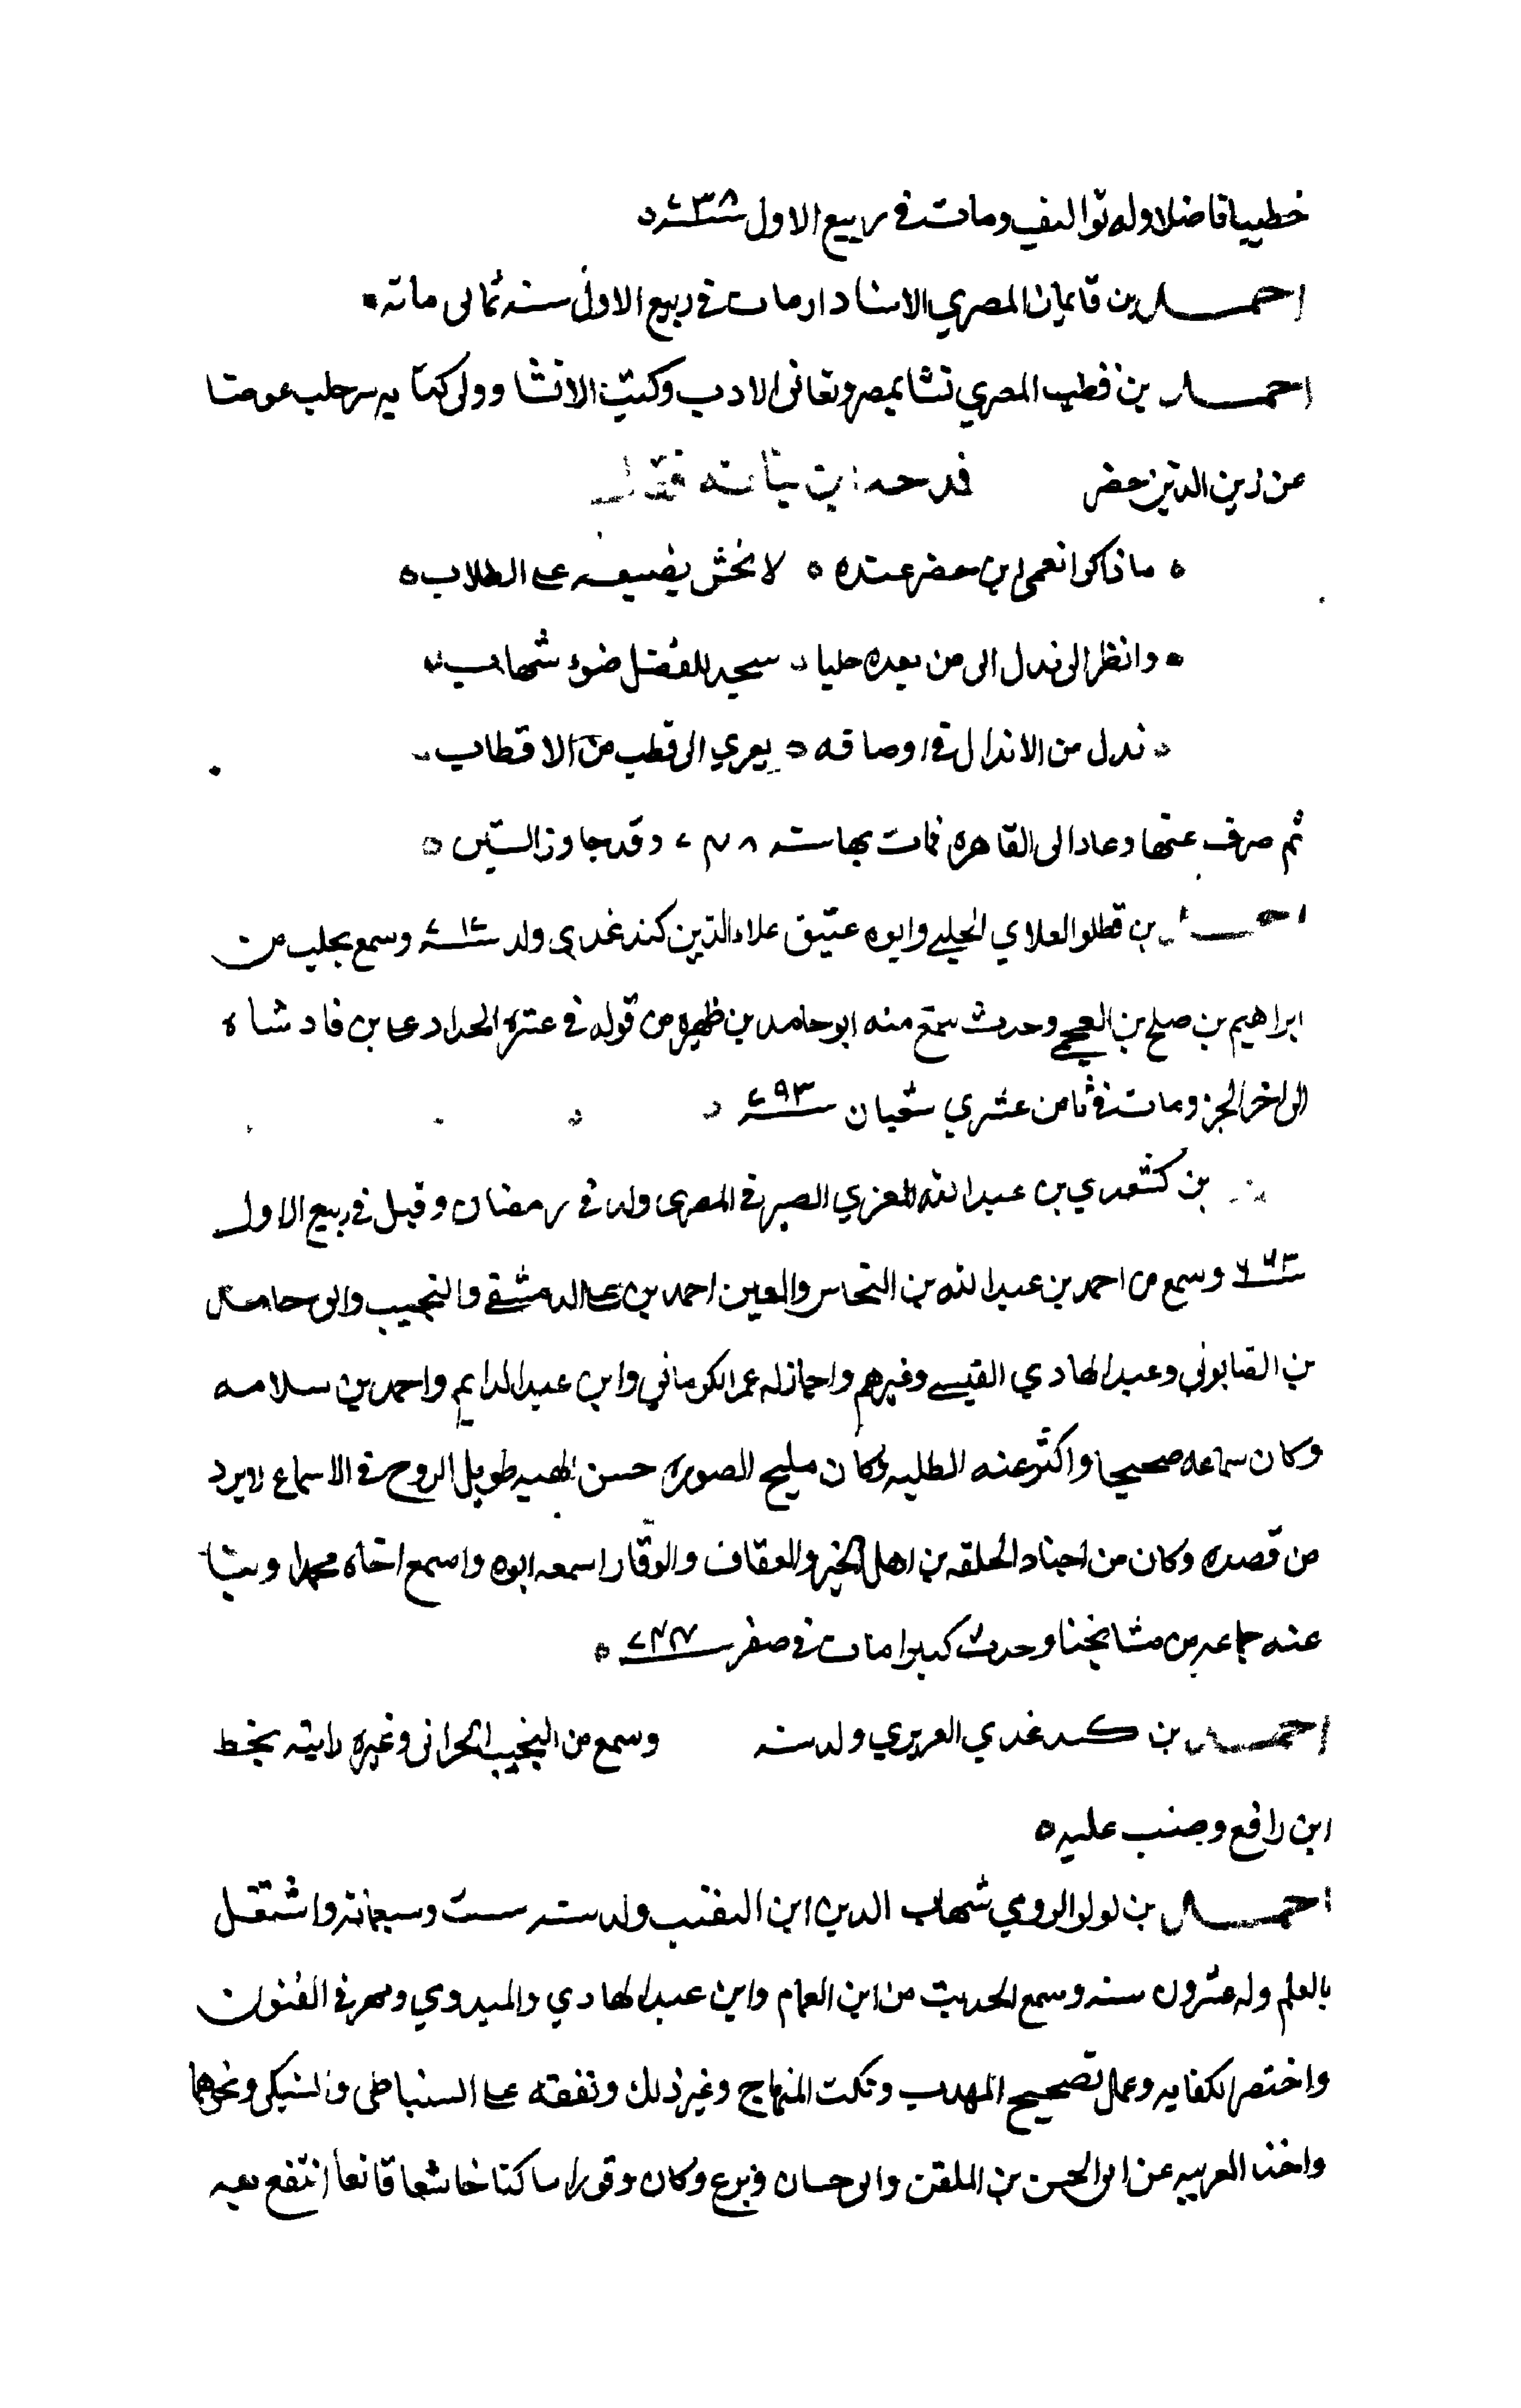 خطيبا فاضلا وله تواليف ومات في ربيع الاول سنة ٧٣٨
احمد بن قايماز المصري الاستادار مات في ربيع الاول سنه ثماني مائه
احمد بن قطب المصري نشا بمصر وتعانى الادب وكتب الانشا وولى كتابه سر حلب عوضا
عن زين الدين خضر فمدحه ابن نباته فقال
ماذاكرا نعمى ابن خضر عنده لا تخش يضيعه على الطلاب
وانظر الى بدل الى من بعده حلبا سجد للفضل ضوء شهاب
بدل من الابدال في اوصافه يعزي الى قطب من الاقطاب
ثم صرف عنها وعاد الى القاهره فمات بها سنه ٧٤٨ وقد جاوز الستين
احمد بن قطلو العلاي الحلبي وابوه عتيق علاء الدين كندغدي ولد سنة وسمع بحلب من
ابراهيم بن صلح بن العجمي وحدث سمع منه ابو حامد بن ظهيره من قوله في عشره الحداد على بن فادشاه
الى اخر الجز ومات في ثامن عشري شعبان سنة ٧٩٣
بن كشتغدي بن عبد الله المعزي الصيرفي المصري ولد في رمضان وقيل في ربيع الاول
سنة ٦٦٣ وسمع من احمد بن عبد الله بن النحاس والمعين احمد بن على الدمشقي والنجيب وابي حامد
بن الصابوني وعبد الهادي القيسي وغيرهم واجاز له عمر الكرماني وابن عبد الدايم واحمد بن سلامه
وكان سماعه صحيحا واكثر عنه الطلبه وكان مليح الصوره حسن الهيه طويل الروح في الاسماع لا يرد
من قصده وكان من اجناد الحلقه من اهل الخير والعفاف والوقار اسمعه ابوه واسمع اخاه محمدا وثنا
عنه جماعه من مشايخنا وحدث كبيرا مات في صفر سنة ٧٤٤
احمد بن كندغدي العزيزي ولد سنه وسمع من النجيب الحراني وغيره رايته بخط
ابن رافع وضبب عليه
احمد بن لولو الرومي شهاب الدين ابن النقيب ولد سنه ست وسبعمائه واشتغل
بالعلم وله عشرون سنه وسمع الحديث من ابن القماح وابن عبد الهادي والميدومي ومهر في الفنون
واختصر الكفايه وعمل تصحيح المهذب ونكت المنهاج وغير ذلك وتفقه على السنباطي والسبكي ونحوهما
واخذ العربيه عن ابي الحسن بن الملقن وابي حيان وبرع وكان وقورا ساكنا خاشعا قانعا انتفع به